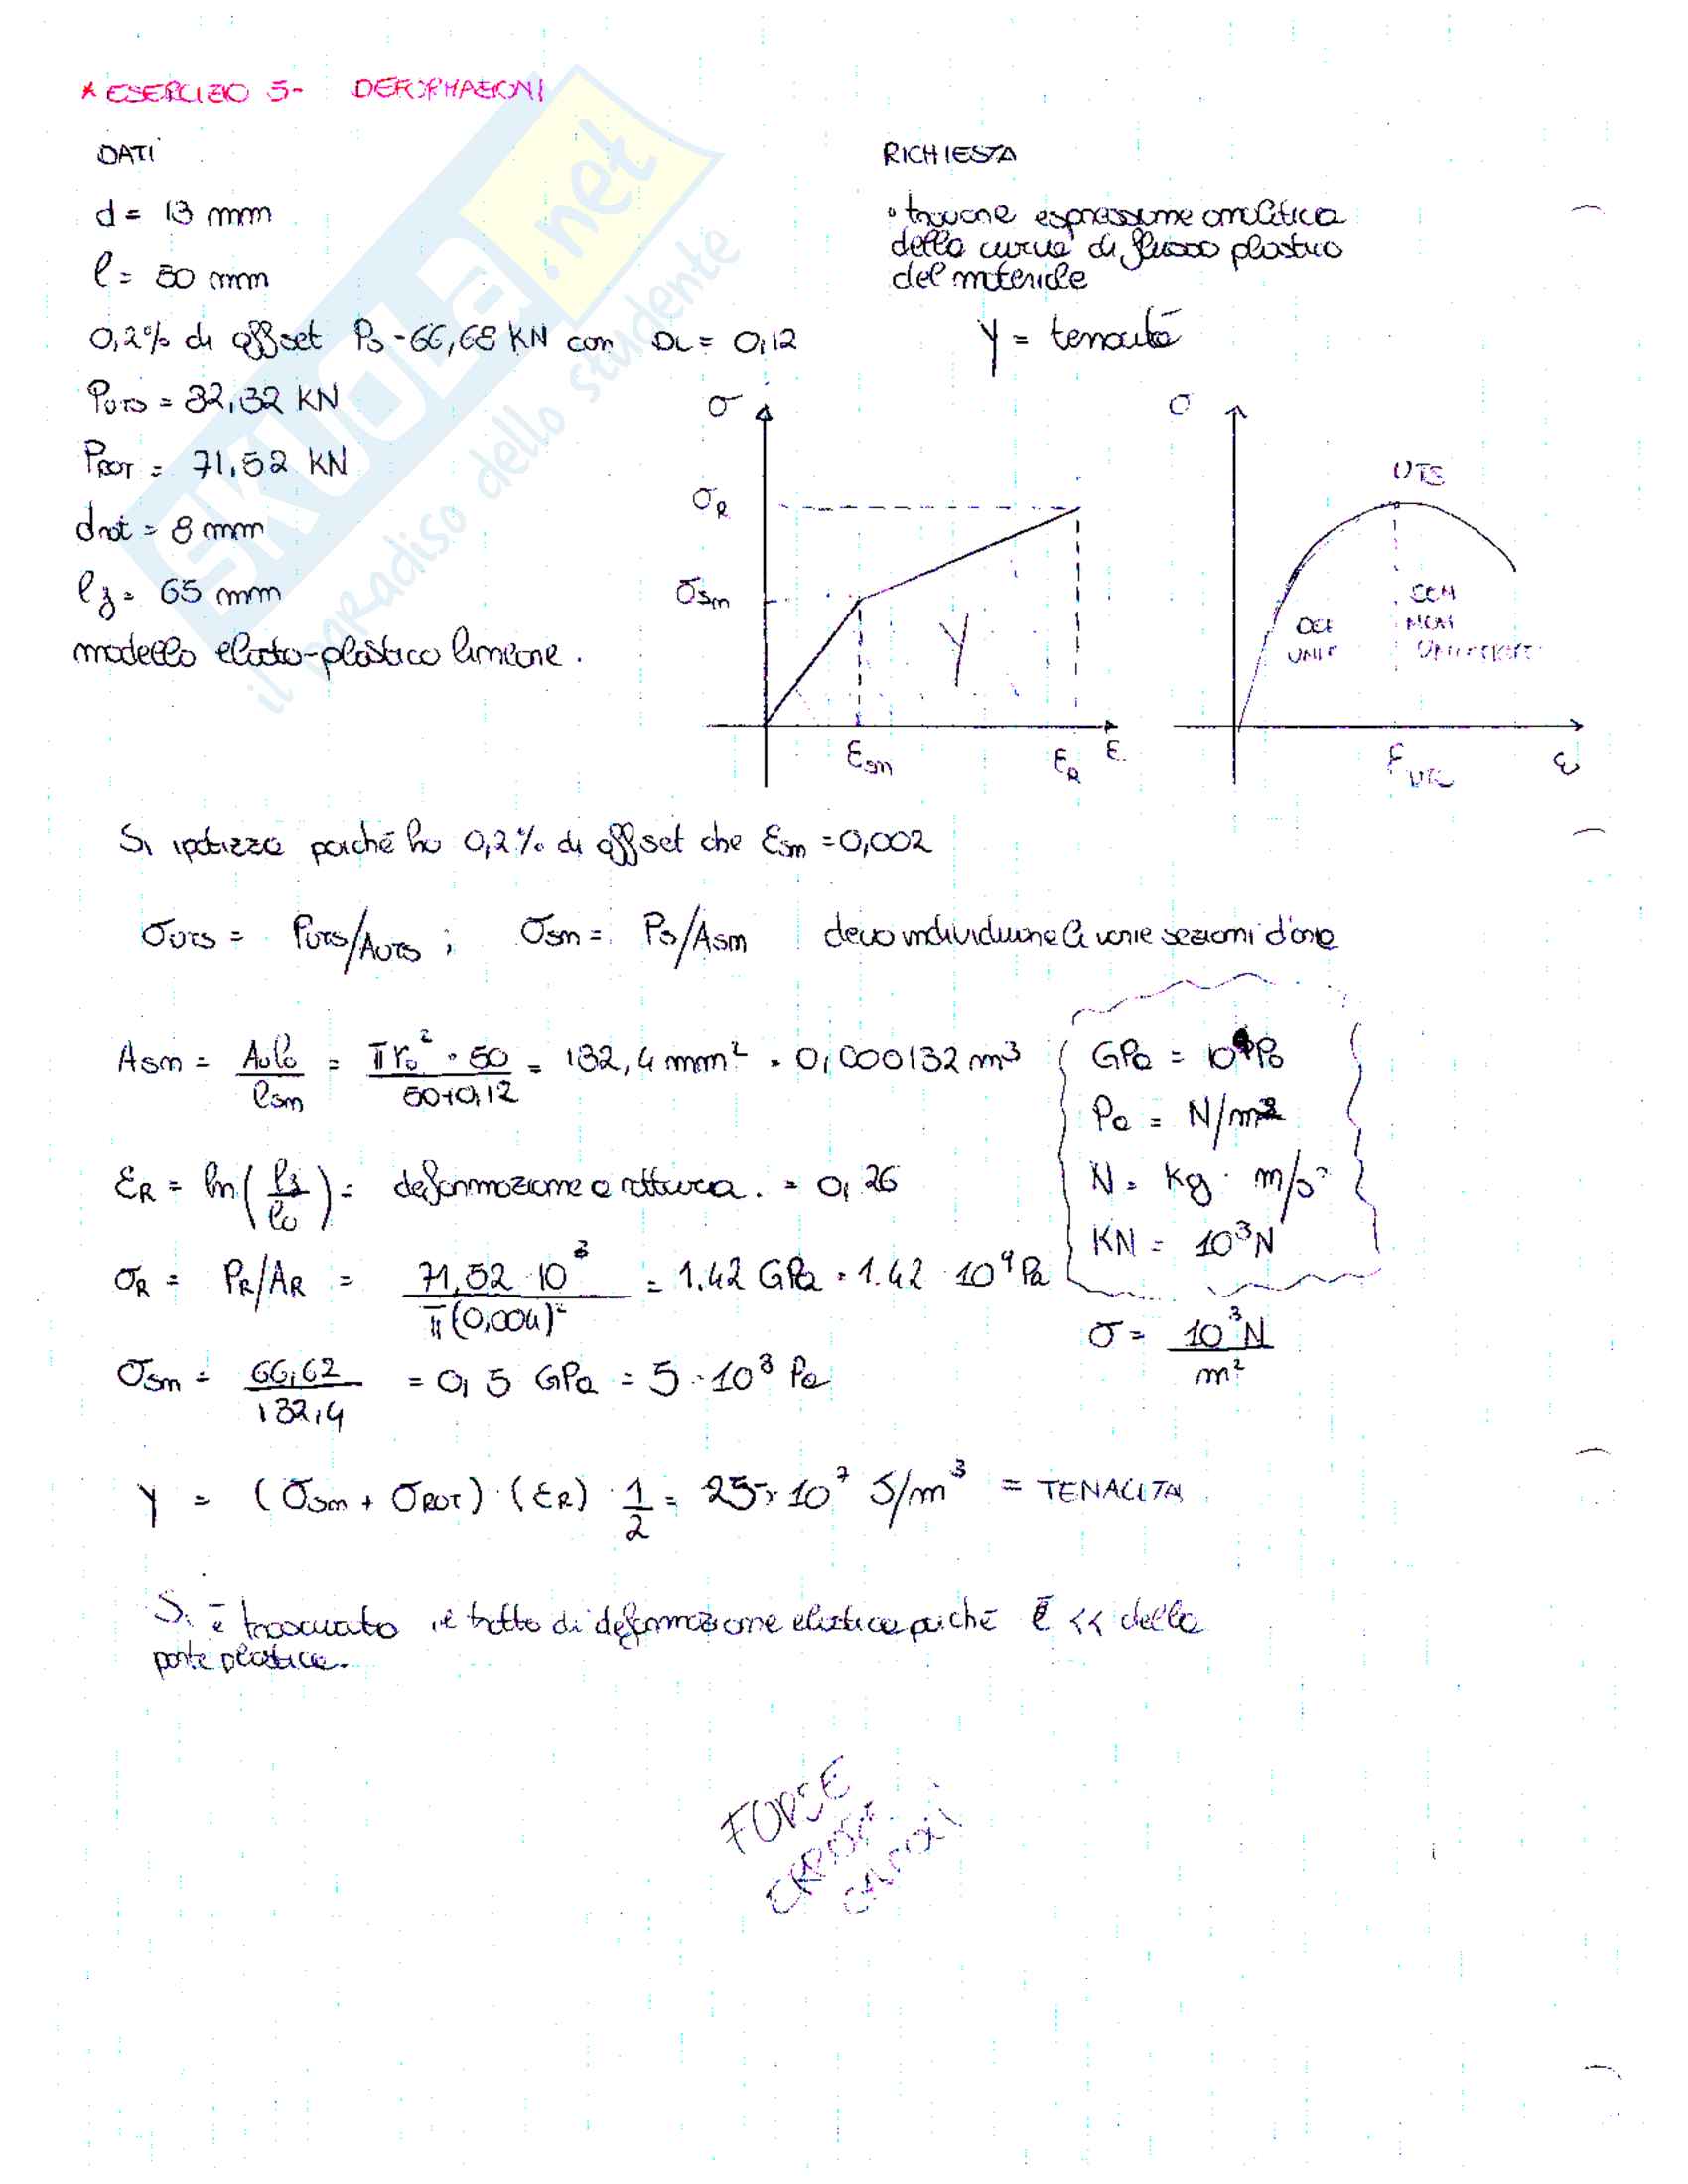 * ESERCIZIO 5- DEFORMAZIONI
DATI
RICHIESTA
d = 13 mm
l = 50 mm
0,2% di offset Ps - 66,68 KN con DL = 0,12
PUTS = 82,32 KN
PROT = 71,52 KN
drot = 8 mm
lf = 65 mm
modello elasto-plastico lineare.
• trovare espressione analitica
della curva di flusso plastico
del materiale
Y = tenacità
σ
σR
σsm
Y
εsm
εR
ε
σ
UTS
DEF
UNIF
CON
NON
εUTS
ε
Si ipotizza poiché ho 0,2% di offset che εsm = 0,002
σUTS = PUTS/AUTS ; σsm = Ps/Asm devo individuare le varie sezioni d'area
Asm = A0l0/lsm = πr0² · 50 / 50+0,12 = 132,4 mm² = 0,000132 m³
εR = ln(lf/l0) = deformazione a rottura. = 0,26
σR = PR/AR = 71,52 · 10³ / π(0,004)² = 1.42 GPa = 1.42 · 10⁹ Pa
σsm = 66,62 / 132,4 = 0,5 GPa = 5 · 10⁸ Pa
GPa = 10⁹Pa
Pa = N/m²
N = Kg · m/s²
KN = 10³N
σ = 10³N / m²
Y = (σsm + σROT) · (εR) · 1/2 = 25 · 10⁷ J/m³ = TENACITA
Si è trascurato il tratto di deformazione elastica poiché è << della
parte plastica.
FORSE